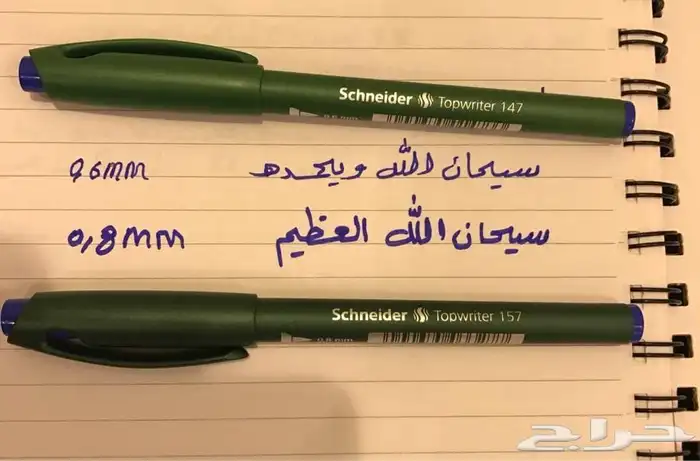 Schneider Topwriter 147
0.6 mm
سبحان الله وبحمده 0,6mm
سبحان الله العظيم 0,8mm
Schneider Topwriter 157
0.8 mm
حراج